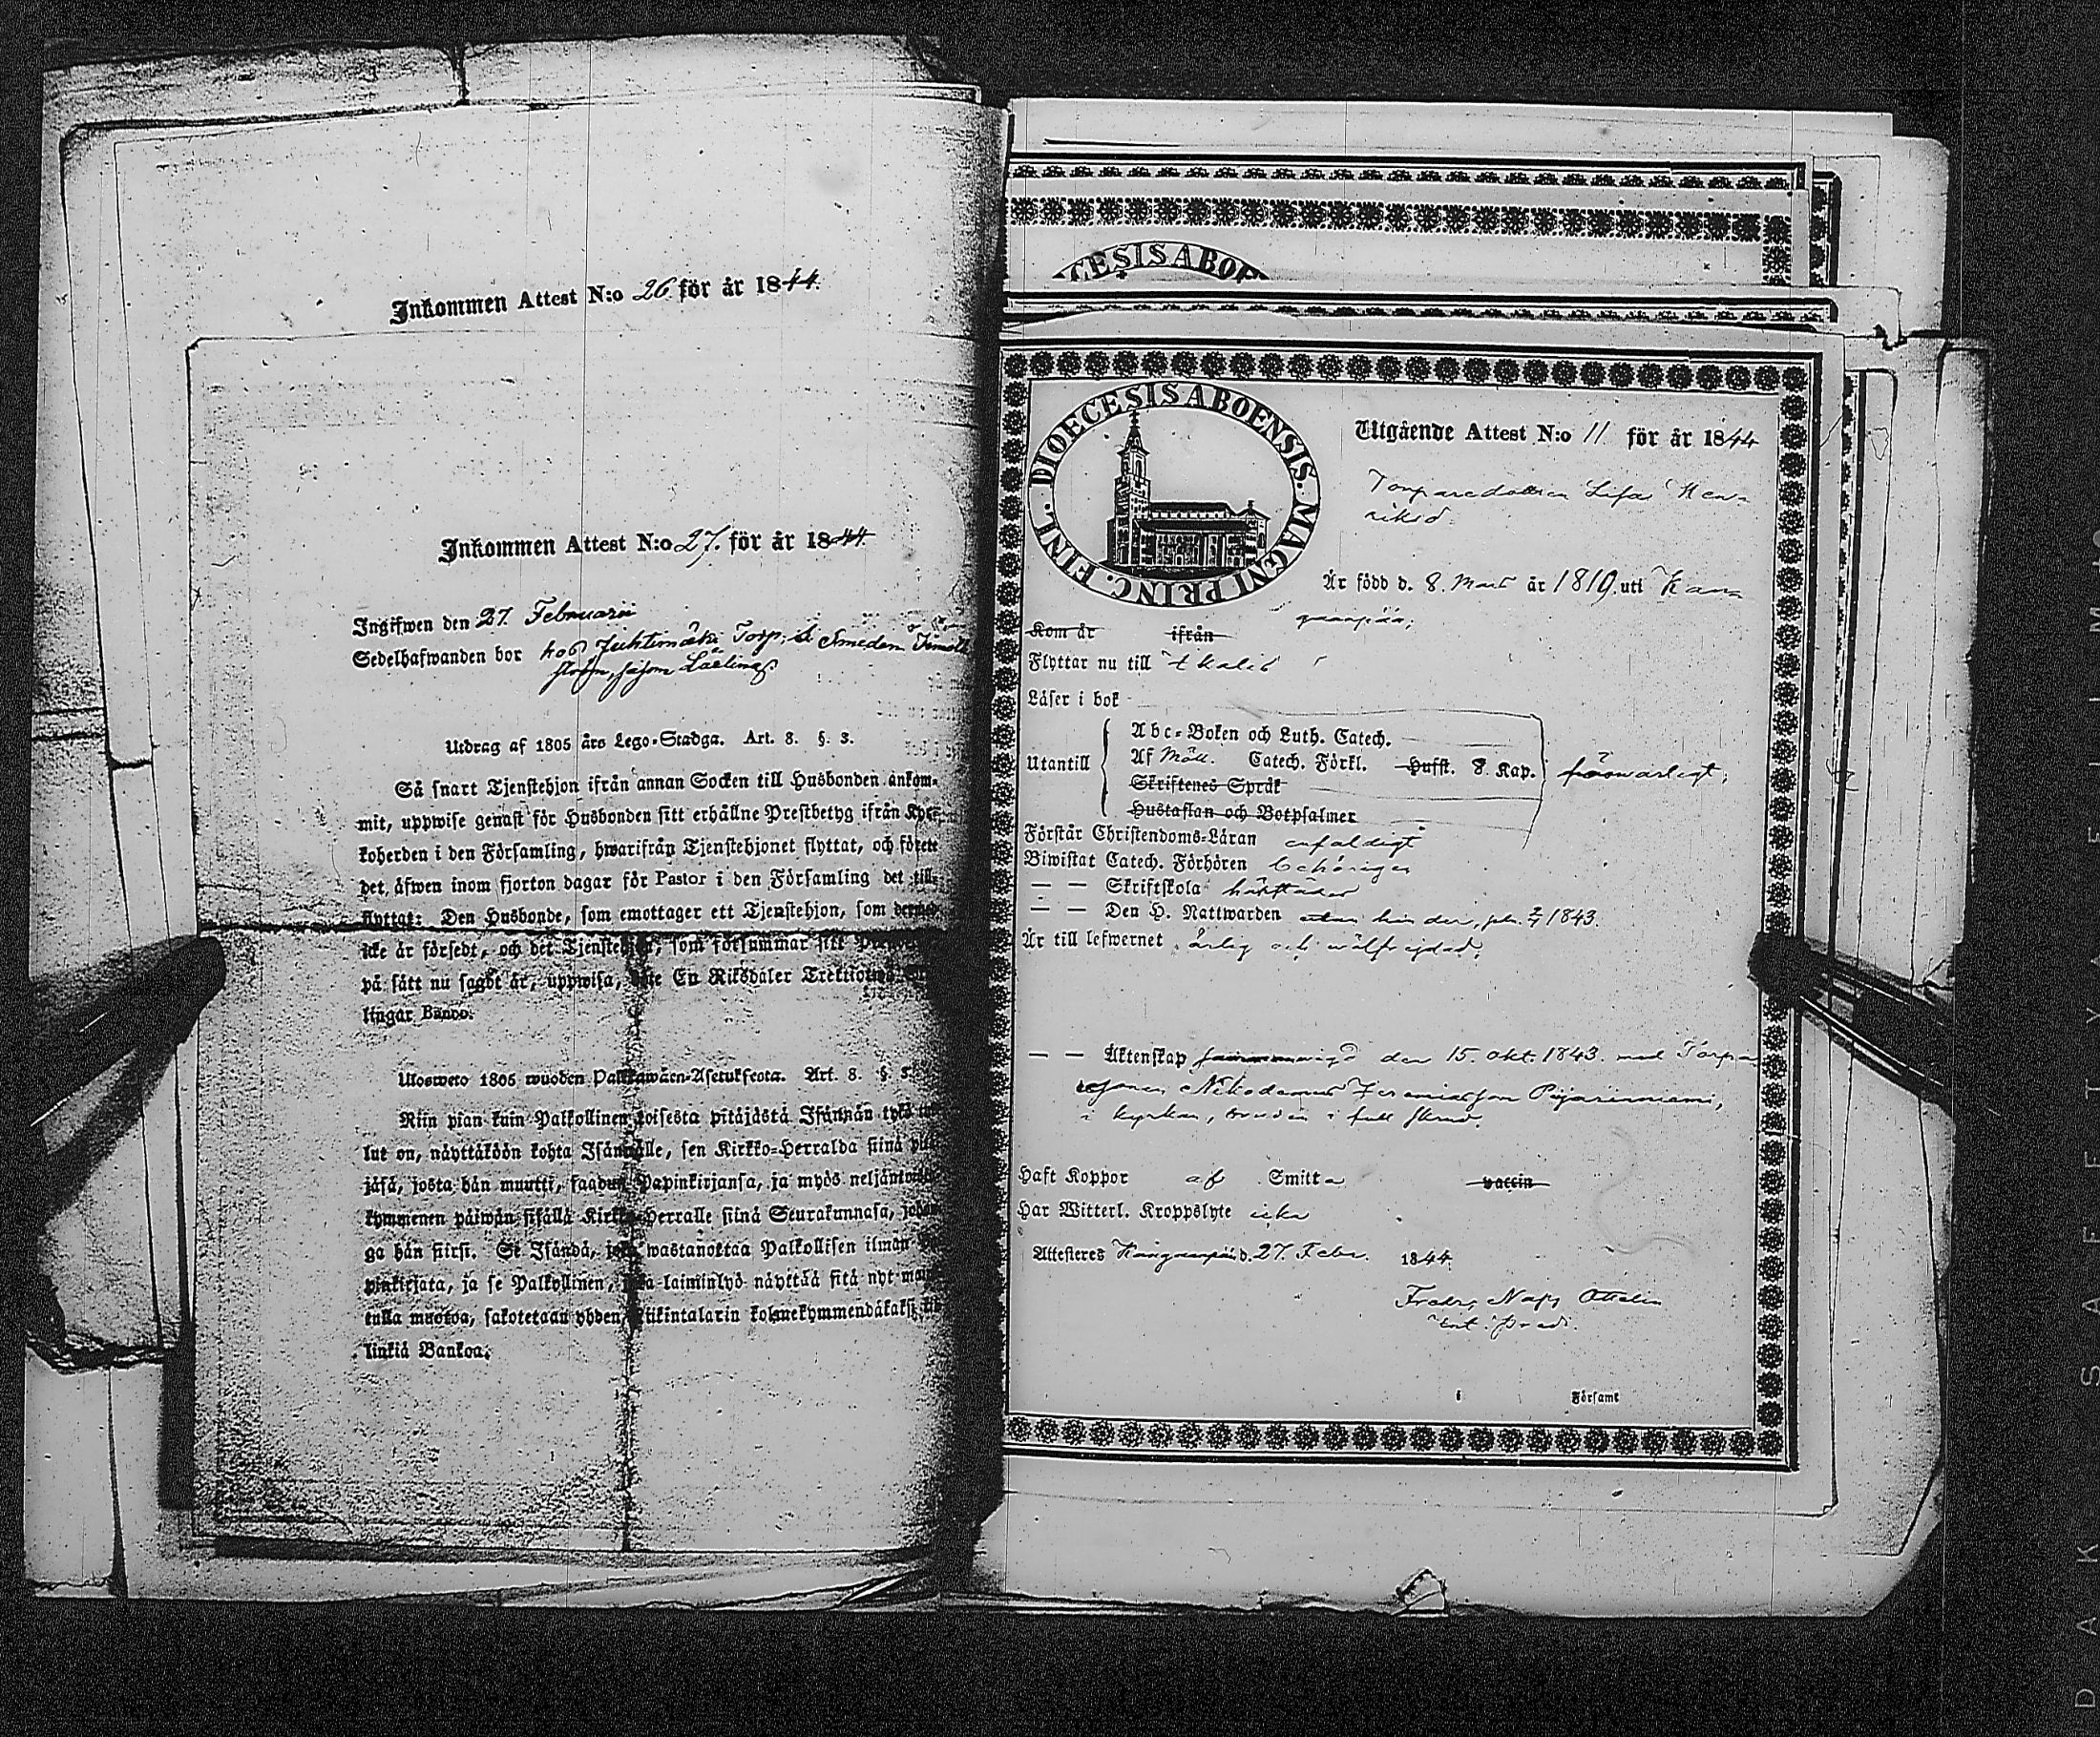 Inkommen Attest N:o 26 för år 1844.
Inkommen Attest N:o 27. för år 1844.
Ingifwen den 27. Februarii
Sedelhafwanden bor hos Juhtimäki Torp; Smeden
såsom
Utdrag af 1805 års Lego-Stadga. Art. 8. §. 3.
Så snart Tjenstehjon ifrån annan Socken till Husbonden ankom-
mit, uppwise genast för Husbonden sitt erhållne Prestbetyg ifrån Kyr-
koherden i den Församling, hwarifrån Tjenstehjonet flyttat, och förete
det, äfwen inom fjorton dagar för Pastor i den Församling det till-
flyttat: Den Husbonde, som emottager ett Tjenstehjon, som
icke är försedt, och det Tjenstehjon, som försummar sitt
på sätt nu sagdt är, uppwisa, böte En Riksdaler Trettiotvå
lingar Banco.
Ulosweto 1805 wuoden Palkkawäen-Asetuksesta. Art. 8. § 3.
Niin pian kuin Palkollinen toisesta pitäjästä Isännän tykö
lut on, näyttäköön kohta Isännälle, sen Kirkko-Herralda siinä
jäsä, josta hän muutti, saadun Papinkirjansa, ja myös neljäntoista
kymmenen päiwän sisällä Kirkko-Herralle siinä Seurakunnasa,
ga hän siirsi. Se Isändä, joka wastanottaa Palkollisen ilman
pinkirjata, ja se Palkollinen, joka laiminlyö näyttää sitä nyt
tulla muotoa, sakotetaan yhden Riikintalarin kolmekymmendäkaksi
linkiä Bankoa.
CESIS ABOE
DIOECESIS ABOENSIS. MAGNI PRINC. FINL.
Utgående Attest N:o 11 för år 1844
Torparedottren Lisa Hen-
riksd.
Är född d. 8. Mars år 1819. uti Kan-
gaanpää;
Kom år ifrån
Flyttar nu till Ikalis
Läser i bok
Abc-Boken och Luth. Catech.
Utantill
Af Möll. Catech. Förkl. Hufst. 8. Kap. förswarligt;
Skriftenes Språk
Hustaflan och Botpsalmer
Förstår Christendoms-Läran enfaldigt
Biwistat Catech. Förhören behörigen
— — Skriftskola härstädes
— — Den H. Nattwarden utan hinder, 1843.
Är till lefwernet ärlig och wälfrejdad;
— — Äktenskap den 15. Okt. 1843. med Torpa-
resonen Nikodemus Jeremiasson Pijarinniemi,
i kyrkan, bruden i full skrud.
Haft Koppor af Smitta vaccin
Har Witterl. Kroppslyte icke
Attesteres Kangaanpää d. 27. Febr. 1844.
Fredr. Ottelin
i Församl